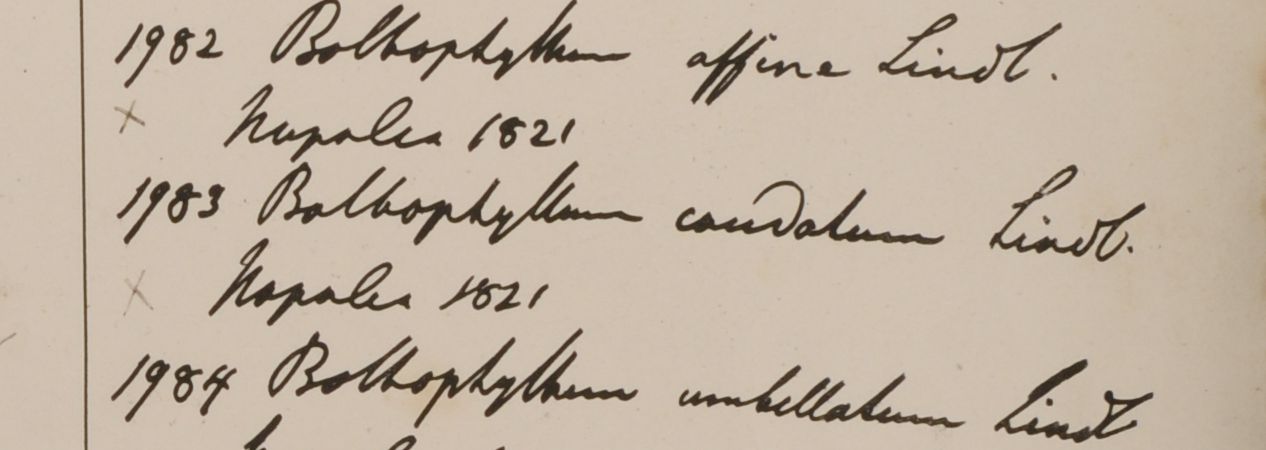 1982 Bolbophyllum affine Lindl.
× Napalia 1821
1983 Bolbophyllum caudatum Lindl.
× Napalia 1821
1984 Bolbophyllum umbellatum Lindl